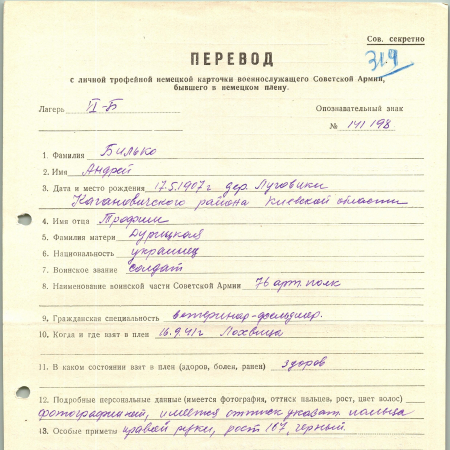 Сов. секретно
319
ПЕРЕВОД
с личной трофейной немецкой карточки военнослужащего Советской Армии,
бывшего в немецком плену.
Лагерь II-Б
Опознавательный знак
№ 141198
1. Фамилия Билько
2. Имя Андрей
3. Дата и место рождения 17.5.1907 г дер. Луговики
Кагановичского района Киевской области
4. Имя отца Трофим
5. Фамилия матери Дурицкая
6. Национальность украинец
7. Воинское звание солдат
8. Наименование воинской части Советской Армии 76 арт. полк
9. Гражданская специальность ветеринар-фельдшер.
10. Когда и где взят в плен 16.9.41 г Лохвица
11. В каком состоянии взят в плен (здоров, болен, ранен) здоров
12. Подробные персональные данные (имеется фотография, оттиск пальцев, рост, цвет волос)
имеется оттиск указат. пальца
13. Особые приметы правой руки, рост 167, черный.